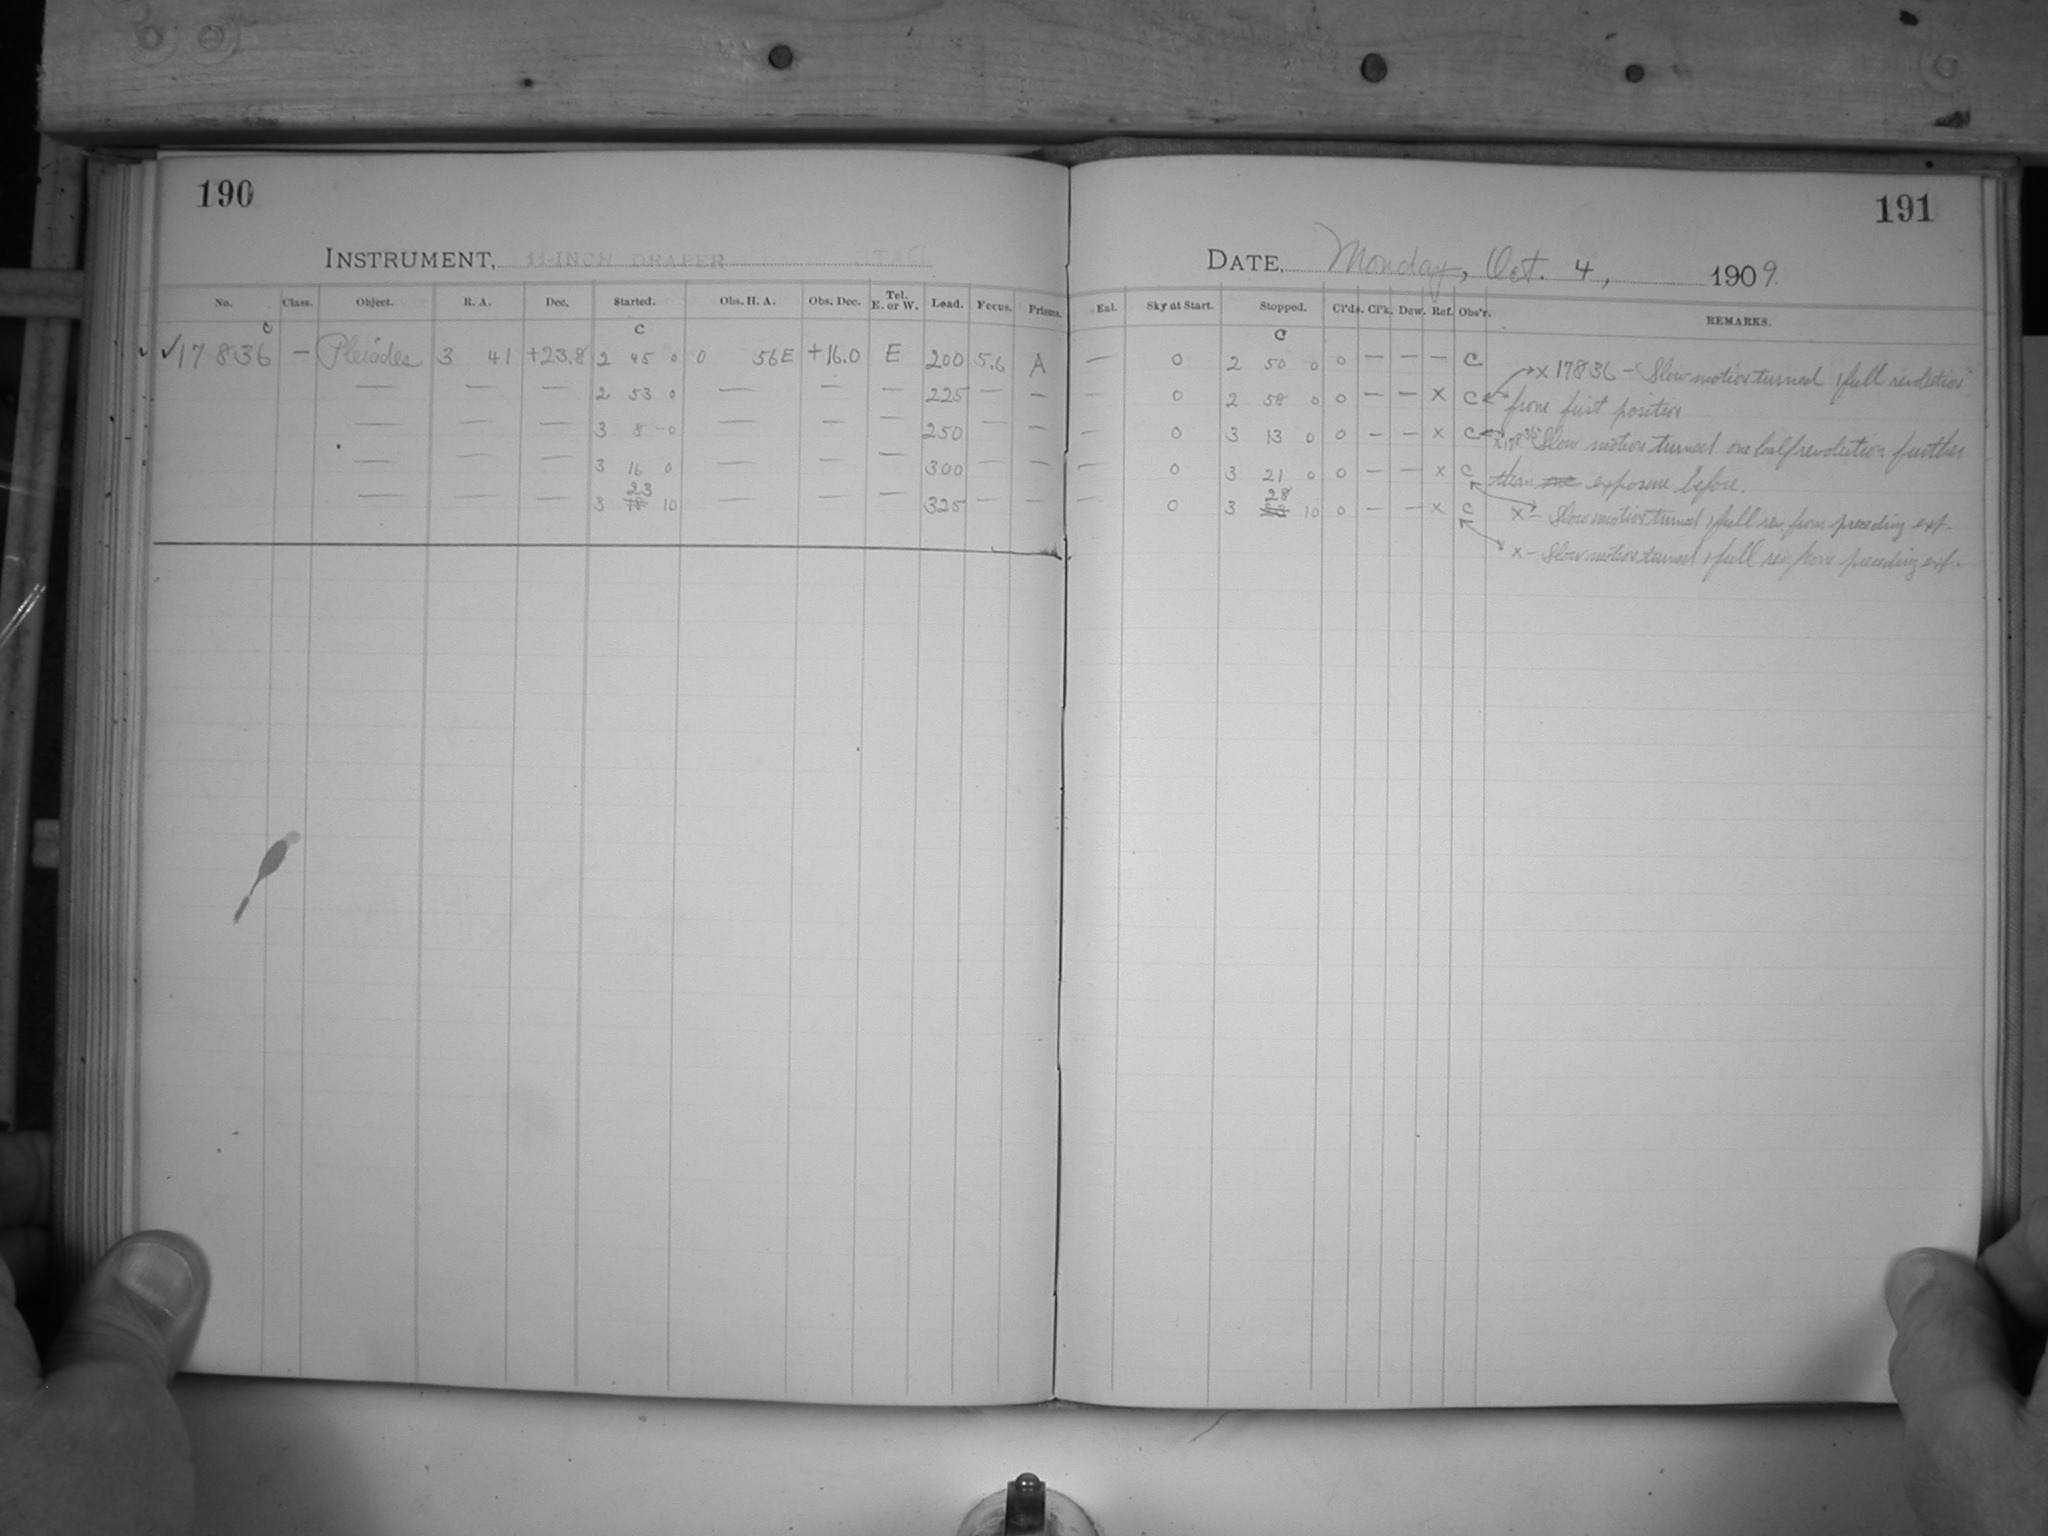 190
191
INSTRUMENT, 11-INCH DRAPER
DATE, Monday, Oct. 4, 1909
No. Class. Object. R. A. Dec. Started. Obs. H. A. Obs. Dec. Tel. E. or W. Load. Focus. Prisms. Enl. Sky at Start. Stopped. Cl'ds. Cl'k. Dew. Ref. Obs'r. REMARKS.
c c c
✓ ✓17836 — Pleiades 3 41 +23.8 2 45 0 0 56E +16.0 E 200 5.6 A — 0 2 50 0 0 — — — C
x 17836 - Slow motion turned 1 full revolution
— — — 2 53 0 — — — 225 — — — 0 2 58 0 0 — — x C
from first position
— — — 3 8 0 — — — 250 — — — 0 3 13 0 0 — — x C
x 17836 Slow motion turned one half revolution further
— — — 3 16 0 — — — 300 — — — 0 3 21 0 0 — — x C
than one exposure before.
23 28
— — — 3 18 10 — — — 325 — — — 0 3 23 10 0 — — x C
x - Slow motion turned 1 full rev. from preceding exp.
x - Slow motion turned 1 full rev from preceding exp.